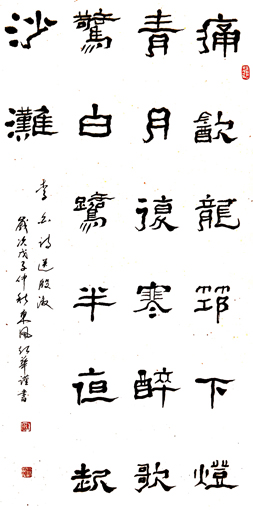 痛飲龍筇下燈
青月復寒醉歌
驚白鷺半夜起
沙灘
李白詩送殷淑
歲次戊子仲秋東風華謹書